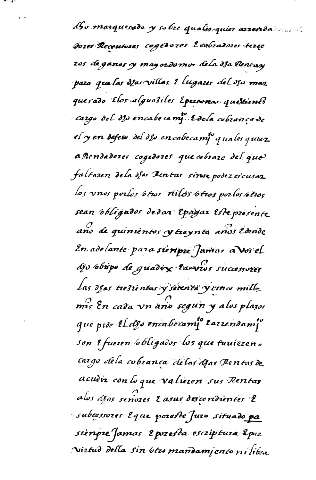 dho marquesado y sobre quales quier arrenda
dores Receptores cogedores E cobradores terce
ros deganos y mayordomos dela dha Renta y
para que las dhas villas E lugares del dho mar
quesado E los alguaziles E personas que tienen
cargo del dho encabecamjº. E dela cobrança de
el y en defeto del dho encabecamjº quales quier
aRendadores cogedores que cobraro del que
faltaren dela dhas Rentas sin se poder escusar
los vnos por los otros ni los otros por los otros
sean obligados de dar E pagar este presente
año de quinientos y treynta años E dende
En adelante para siempre Jamas a vos el
dho obispo de guadix E a vros sucesores
las dhas trezientas y setenta y cinco mill
mrs En cada vn año segun y alos plazos
que por El dho encabecamjto E arrendamjº
son E fueren obligados los que tuvieren
cargo dela cobrança delas dhas Rentas de
acudir con lo que valieren sus Rentas
a los dhos señores E a sus descendientes E
subcessores E que por este Juro situado pa
siempre Jamas E por esta escriptura E por
virtud della sin otro mandamiento ni libra